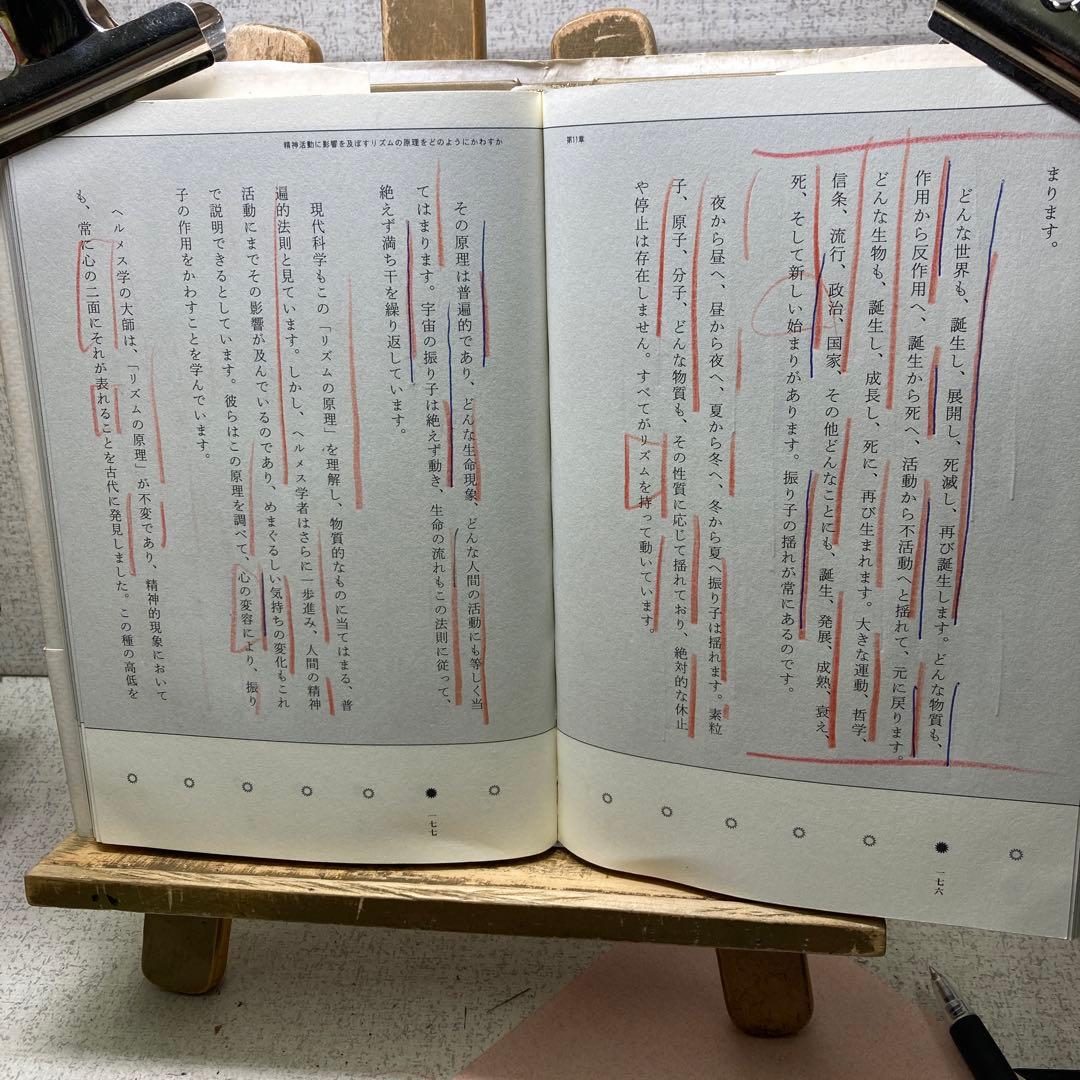 第11章
まります。
どんな世界も、誕生し、展開し、死滅し、再び誕生します。どんな物質も、
作用から反作用へ、誕生から死へ、活動から不活動へと揺れて、元に戻ります。
どんな生物も、誕生し、成長し、死に、再び生まれます。大きな運動、哲学、
信条、流行、政治、国家、その他どんなことにも、誕生、発展、成熟、衰え、
死、そして新しい始まりがあります。振り子の揺れが常にあるのです。
夜から昼へ、昼から夜へ、夏から冬へ、冬から夏へ振り子は揺れます。素粒
子、原子、分子、どんな物質も、その性質に応じて揺れており、絶対的な休止
や停止は存在しません。すべてがリズムを持って動いています。
一七六
精神活動に影響を及ぼすリズムの原理をどのようにかわすか
その原理は普遍的であり、どんな生命現象、どんな人間の活動にも等しく当
てはまります。宇宙の振り子は絶えず動き、生命の流れもこの法則に従って、
絶えず満ち干を繰り返しています。
現代科学もこの「リズムの原理」を理解し、物質的なものに当てはまる、普
遍的法則と見ています。しかし、ヘルメス学者はさらに一歩進み、人間の精神
活動にまでその影響が及んでいるのであり、めまぐるしい気持ちの変化もこれ
で説明できるとしています。彼らはこの原理を調べて、心の変容により、振り
子の作用をかわすことを学んでいます。
ヘルメス学の大師は、「リズムの原理」が不変であり、精神的現象において
も、常に心の二面にそれが表れることを古代に発見しました。この種の高低を
一七七